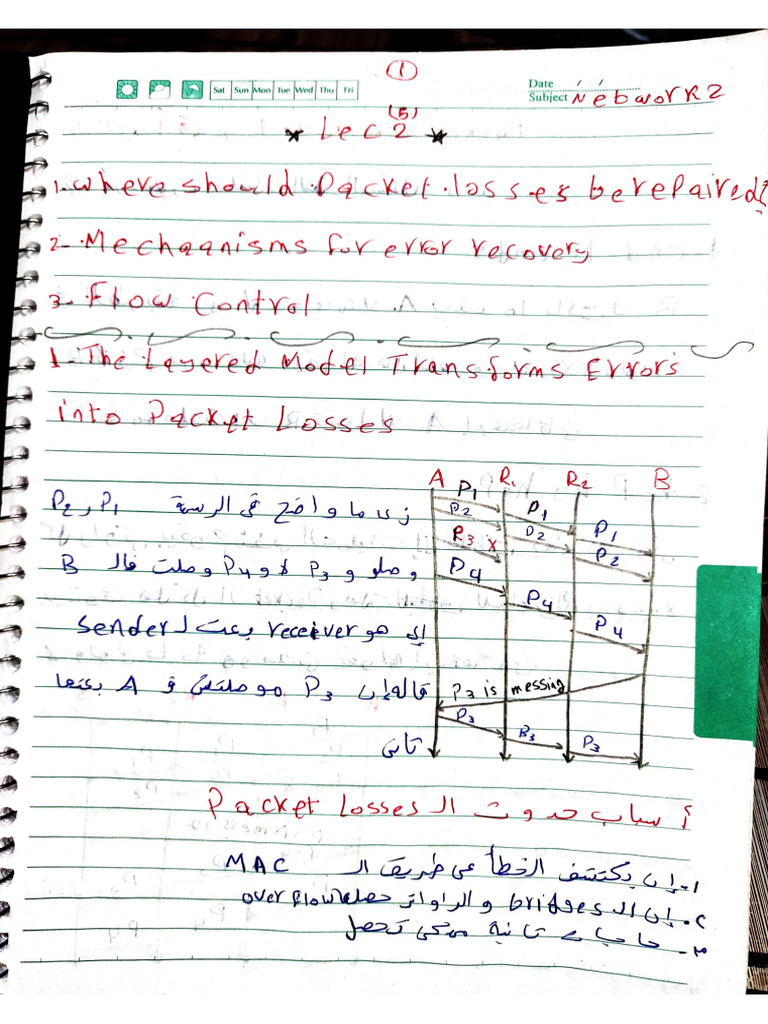 1
Sat Sun Mon Tue Wed Thu Fri
Date / /
Subject Network 2
(5)
* Lec 2 *
1. where should Packet losses be repaired?
2. Mechaanisms for error recovery
3. Flow Control
1. The Layered Model Transforms Errors
into Packet Losses
A R1 R2 B
P1 P1 P1
P2 P2 P2
P3 x
P4 P4 P4
P3 is messing
P3 P3 P3
زى ما واضح فى الرسمة P1 و P2
وصلو و P3 لا و P4 وصلت فالـ B
إلى هو receiver بعت لـ sender
قاله إن P3 موصلتش ف A بعتها
تانى
أسباب حدوث الـ Packet Losses
1- إن يكتشف الخطأ عن طريق الـ MAC
2- إن الـ bridges و الراوتر حصله over flow
3- حاجات تانية ممكن تحصل